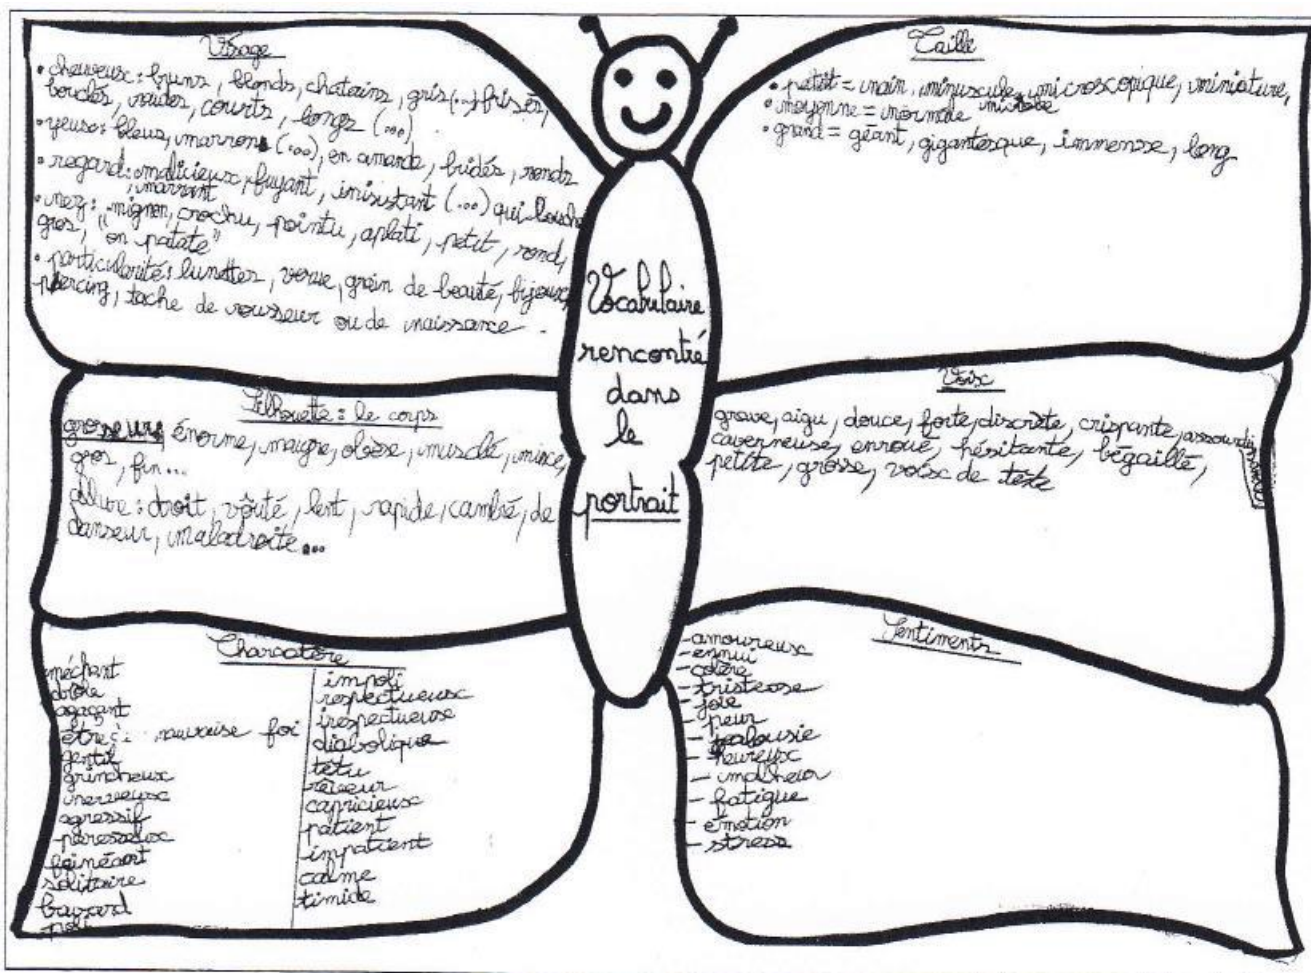 Visage
• cheveux : bruns, blonds, chatains, gris (...) frisés,
bouclés, raides, courts, longs (...)
• yeux : bleus, marrons (...), en amande, bridés, ronds
• regard : malicieux, fuyant, insistant (...) qui louche
, marrant
• nez : mignon, crochu, pointu, aplati, petit, rond,
gros, "en patate"
• particularité : lunettes, verrue, grain de beauté, bijoux,
piercing, tache de rousseur ou de naissance.
Taille
• petit = nain, minuscule, microscopique, miniature,
• moyenne = normale
• grand = géant, gigantesque, immense, long
Vocabulaire
rencontré
dans
le
portrait
Silhouette : le corps
énorme, maigre, obèse, musclé, mince,
gros, fin...
allure : droit, voûté, lent, rapide, cambré, de
danseur, maladroite...
Voix
grave, aigu, douce, forte, discrète, crispante,
caverneuse, enroué, hésitante, bégaillé,
petite, grosse, voix de tête
Charactère
méchant
drôle
agaçant
être mauvaise foi
gentil
grincheux
nerveux
agressif
paresseux
fainéant
solitaire
bavard
poli
impoli
respectueux
irespectueuse
diabolique
têtu
rêveur
capricieux
patient
impatient
calme
timide
Sentiments
- amoureux
- ennui
- colère
- tristesse
- joie
- peur
- jalousie
- heureux
- malheur
- fatigue
- émotion
- stress